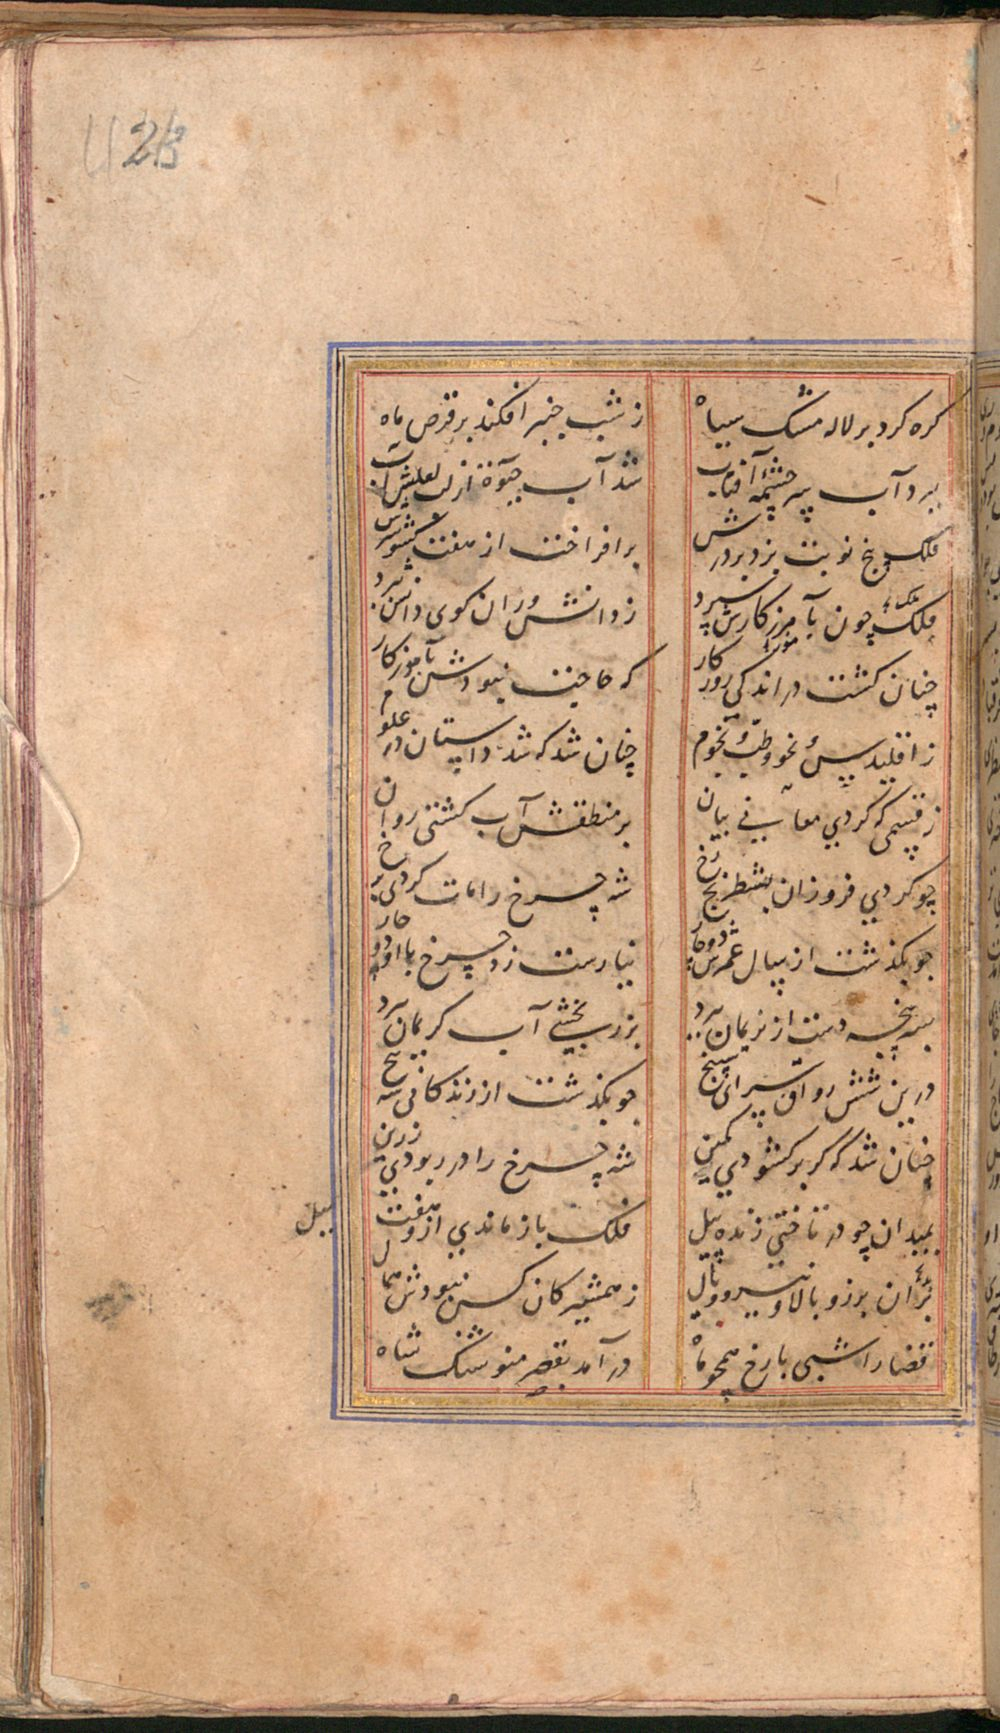 42B
کره کرد بر لاله مشک سیاه ز شب چنبر افکند بر قرص ماه
ببرد آب سرچشمهٔ آفتاب شد آب حیوة از لب لعلش آب
فلک پنج نوبت بزد بر درش برافراخت از هفت کشور سرش
ملک چون بآموزکارش سپرد ز دانش وران کوی دانش ببرد
چنان کشت در اندکی روزکار که حاجت نبودش بآموزکار
ز اقلیدس و نحو و طب و نجوم چنان شد که شد داستان در علوم
ز قسمی که کردی معانی بیان بر منطقش آب کشتی روان
چو کردی فروزان بشطرنج رخ شه چرخ را مات کردی بر رخ
چو بکذشت از سال عمرش دو چار نیارست زد چرخ با او دو چار
بسرپنجه دست از نریمان ببرد بزربخشی آب کریمان ببرد
درین شش رواق سرای سپنج چو بکذشت از زندکانی سه پنج
چنان شد که کر برکشودی کمین شه چرخ را در ربودی ز زین
بمیدان چو در تاختی زنده پیل فلک باز ماندی ازو هفت میل
بر آن برز و بالا و نیرو و یال ز همشیرکان کس نبودش همال
قضا را شبی با رخ همچو ماه در آمد بقصر منوشنک شاه